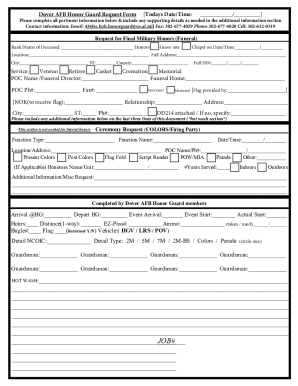 Dover AFB Honor Guard Request Form (Todays Date/Time: / )
Please complete all pertinent information below it include any supporting details as needed in the additional information section
Contact information: Email: Fax 302-677-4029 Phone 302-677-4028 Cell: 302-632-0319
Request for Final Military Honors (Funeral)
Rank/Name of Deceased: Honors Grave-site Chapel on Date/Time: /
Location: Full Address:
City: ST: County: Full SSN: / /
Service: Veteran Retiree Casket Cremation Memorial
POC Name/Funeral Director: Funeral Home:
POC Ph#: Fax#: [flag provided by: ]
[NOK(to receive flag): Relationship: Address:
City: ST: Ph#: DD214 attached / If no, specify:
Please include any additional information below on the last three lines of this document ("hot wash section")
Ceremony Request (COLORS/Firing Party)
Function Type: Function Name: Date/Time: /
Location/Address: POC Name/Ph#:
Present Colors Post Colors Flag Fold Script Reader POW/MIA Parade Other:
(If Applicable) Honorees Name/Unit: #Years Served: Indoors Outdoors
Additional Information/Misc Request:
Completed by Dover AFB Honor Guard members
Arrival @HG: Depart HG: Event Arrival: Event Start: Actual Start:
Hours: Distance (1-way): EZ-Pass#: Ammo: (taken / used) /
Bugle# Flag: (Returned Y/N) Vehicle( HGV / LRS / POV)
Detail NCOIC: Detail Type: 2M / 5M / 7M / 2M-BS / Colors / Parade (circle one)
Guardsman: Guardsman: Guardsman: Guardsman:
Guardsman: Guardsman: Guardsman: Guardsman:
HOT WASH:
JOB#